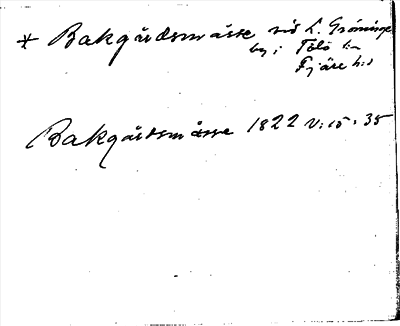 * Bakgårdsmåsse vid L. Gröninge
by i Tölö sn
Fjäre hd
Bakgårdsmåsse 1822 V: 15: 35